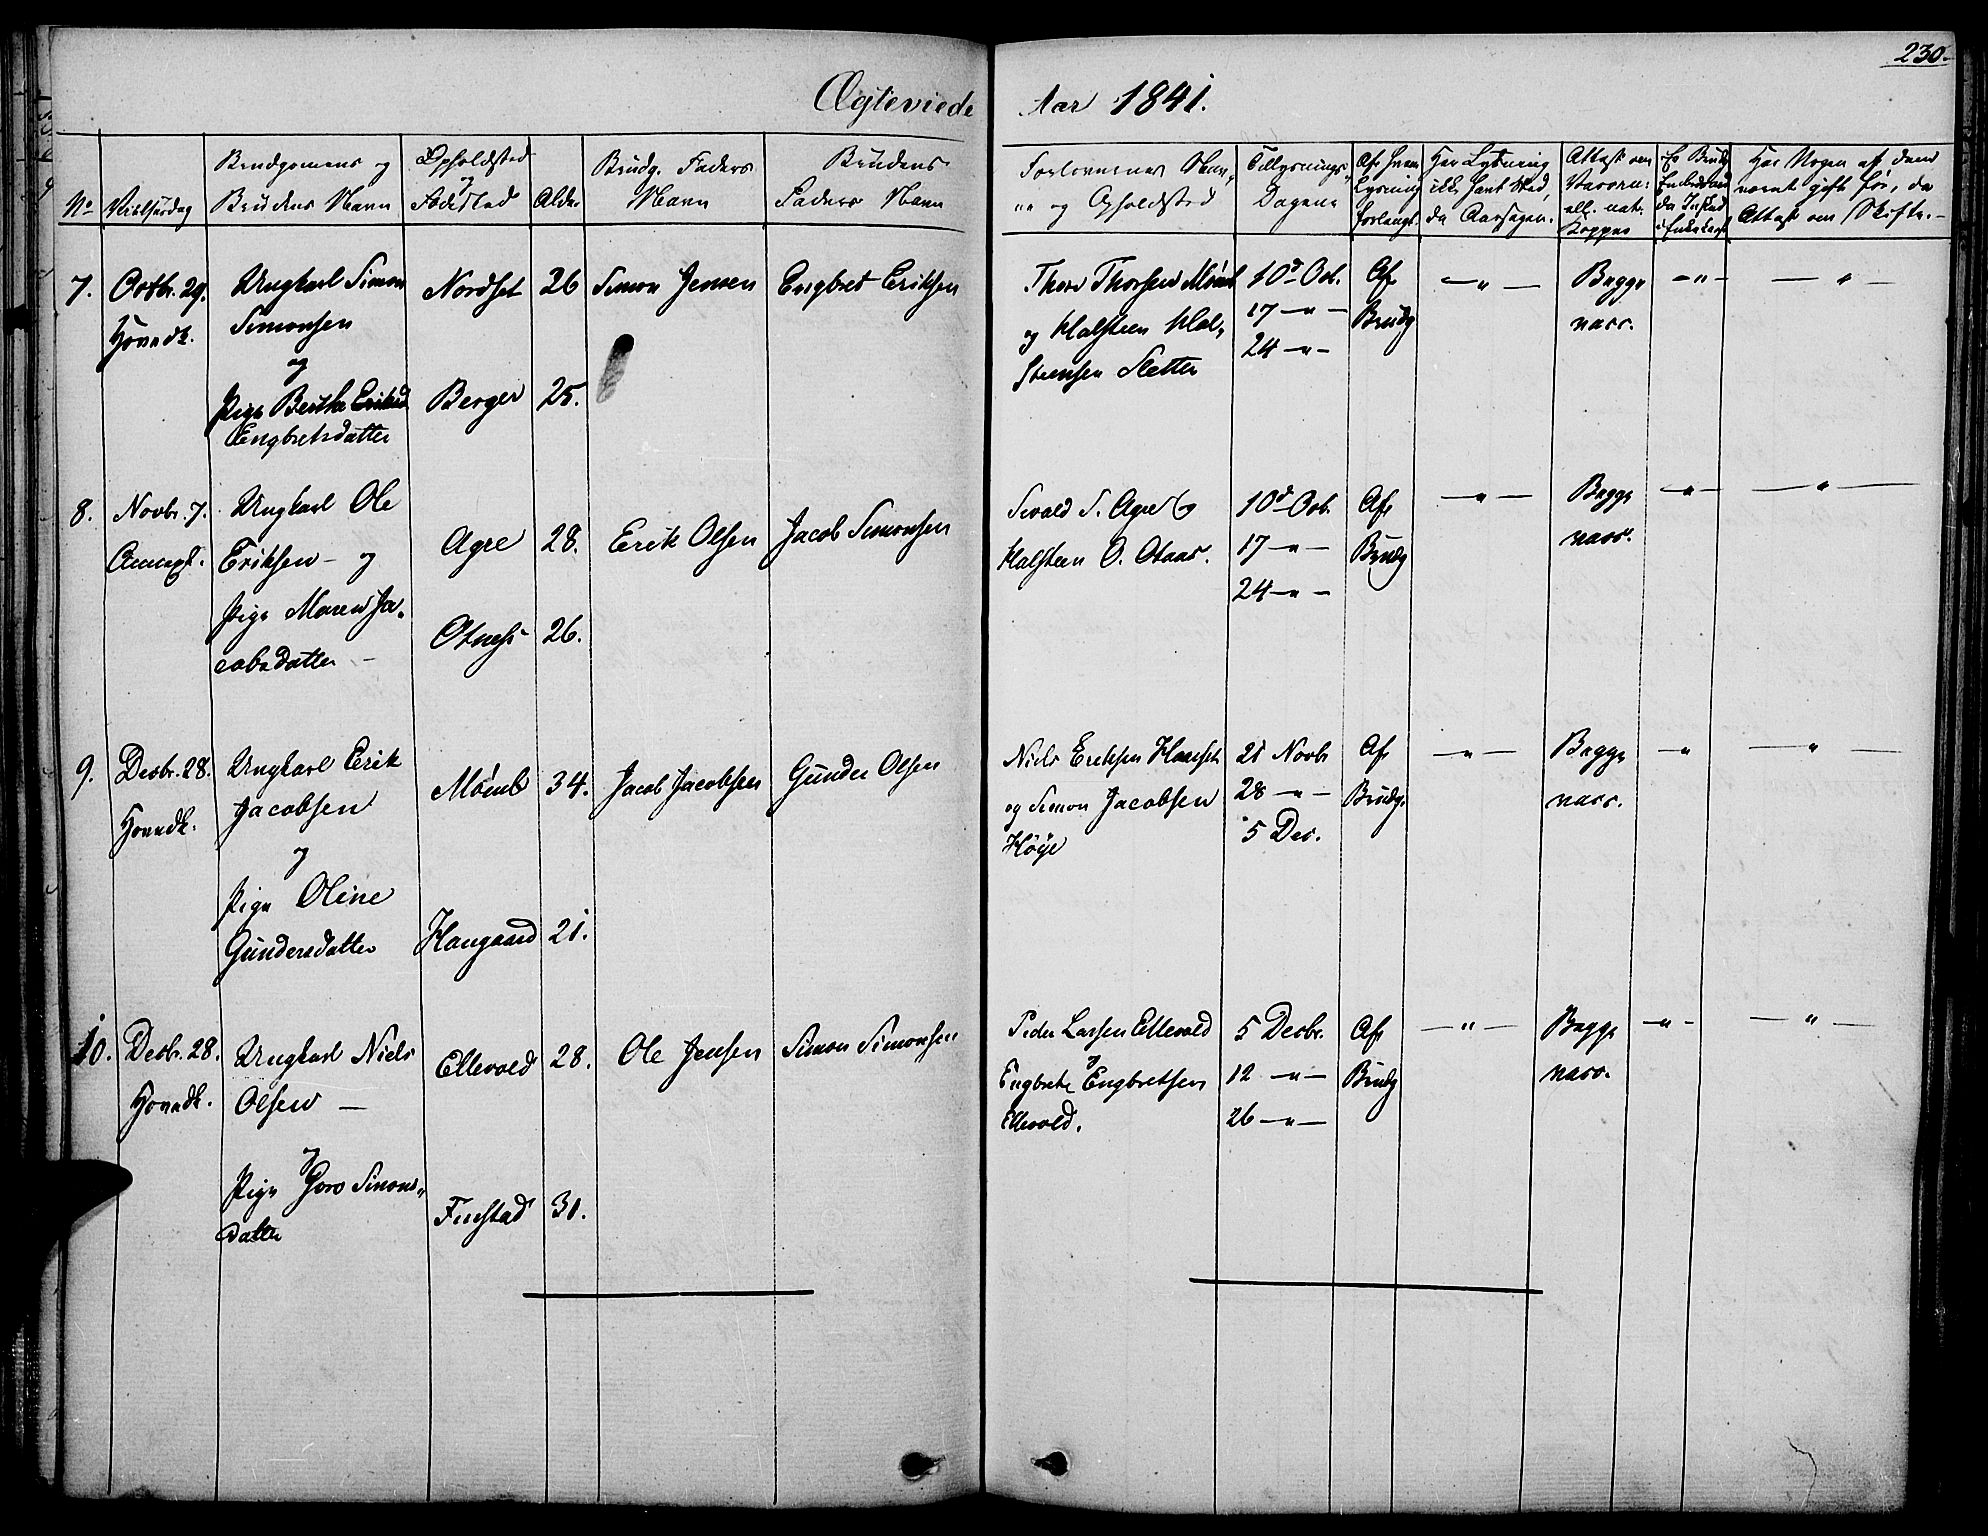 230.
Ægteviede
Aar 1841.
No
Vielsesdag
Brudgomens og
Brudens Navn
Opholdsted
og
Fødested
Alder
Brudg. Faders
Navn
Brudens
Faders Navn
Forlovernes Nav-
ne og Opholdsted
Tillysnings-
Dagene
Af hvem
Lysning
forlangt.
Har Lysning
ikke havt Sted,
da Aarsagen.
Attest om
Vaccin:
ell. nat.
Kopper
Er Brudg.
da
Har Nogen af dem
været gift før, da
Attest om Skifte.-
7.
Octbr. 29.
Hovedk.
Ungkarl Simon
Simonsen
og
Pige Berthe
Engbretsdatter
Nordset
Berger
26
25.
Simon Jensen
Engbret Eriksen
Thore Thorsen
og Halsteen Hal-
steensen Sletten
10d Oct.
17 — " —
24 — " —
Af
Brudg
— " —
Begge
vacc.
— " —
— " —
8.
Novbr. 7.
Annexk.
Ungkarl Ole
Eriksen - og
Pige Maren Ja-
cobsdatter -
Agre
Otnes
28.
26.
Erik Olsen
Jacob Simonsen
Sivald S. Agre og
Halsteen O. Otnes.
10d Oct.
17 — " —
24 — " —
Af
Brudg
— " —
Begge
vacc.
— " —
— " —
9.
Decbr. 28.
Hovedk.
Ungkarl Erik
Jacobsen
og
Pige Oline
Gundersdatter
Haugaard
34.
21.
Jacob Jacobsen
Gunder Olsen
Niels Eriksen Hanset
og Simon Jacobsen
Høye
21 Novbr
28 — " —
5 Dec.
Af
Brudg.
— " —
Begge
vacc.
— "
— " —
10.
Decbr. 28.
Hovedk.
Ungkarl Niels
Olsen —
og
Pige Goro Simons-
datter
Ellevold
Finstad
28.
31.
Ole Jensen
Simon Simonsen
Peder Larsen Ellevold
og
Engbret Engbretsen
Ellevold.
5 Decbr.
12 — " —
26 — " —
Af
Brudg
— " —
Begge
vacc.
— " —
— " —